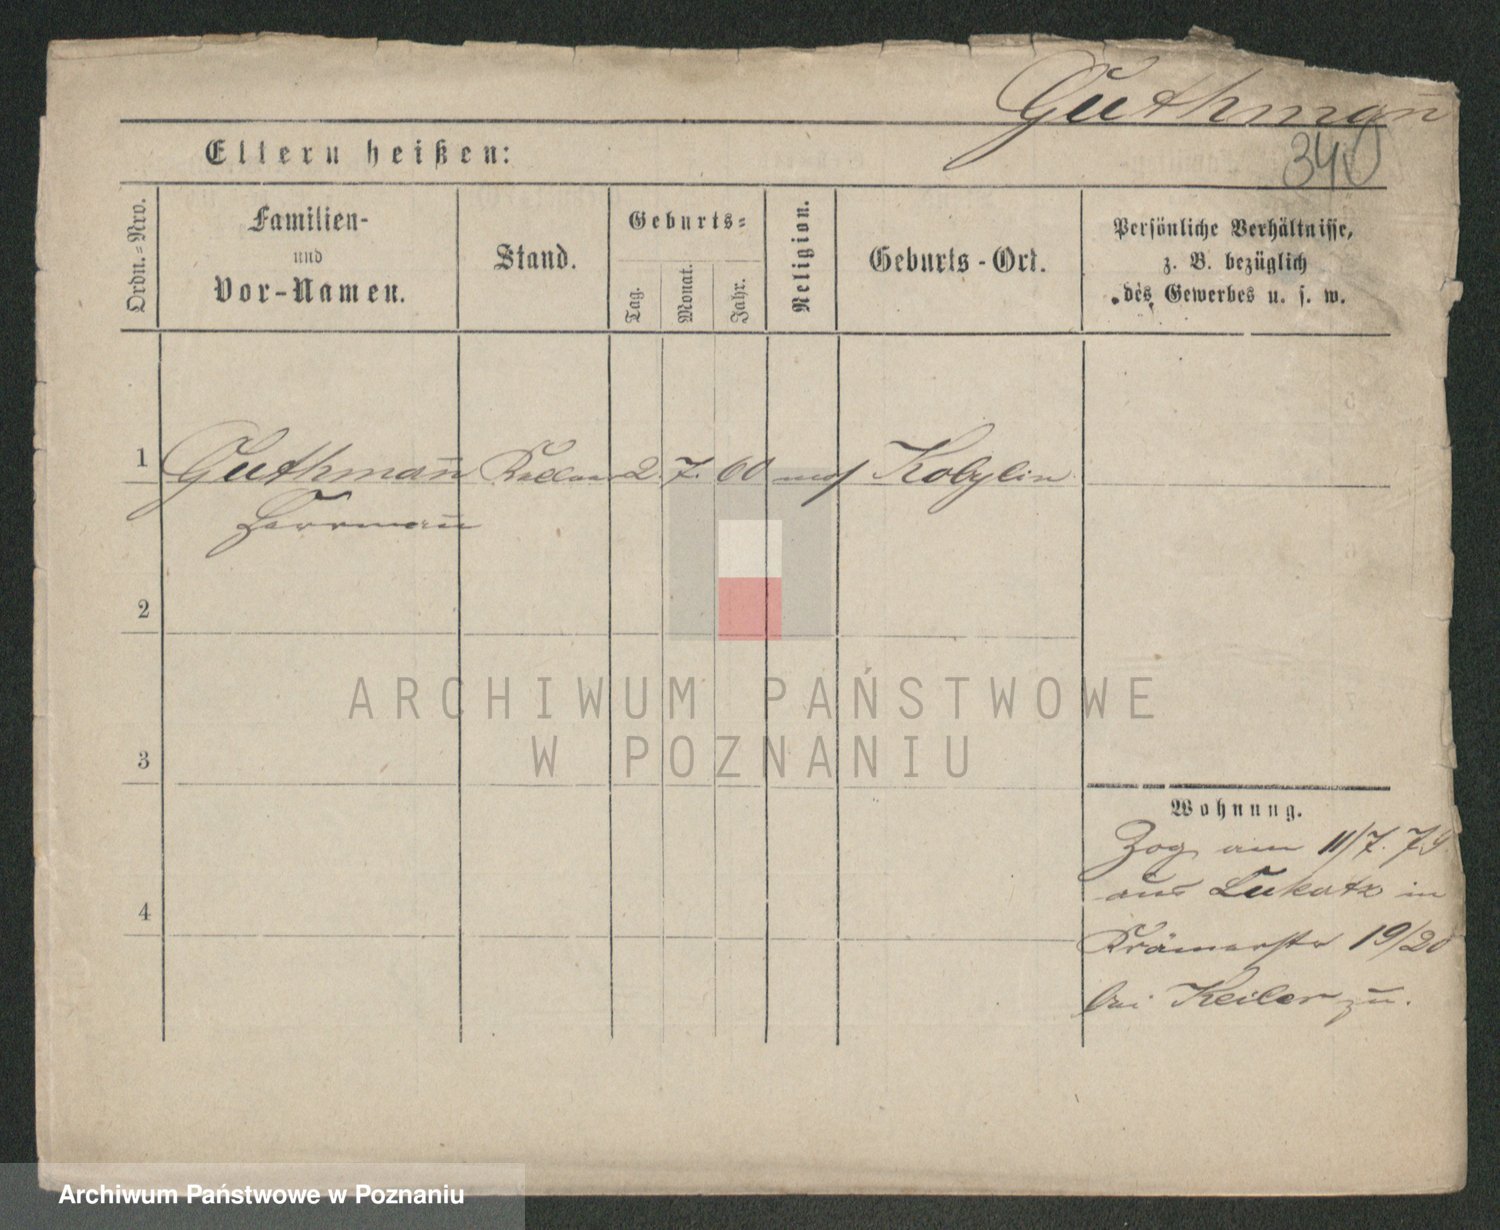 Guthmañ
340
Eltern heißen:
Ordn.-Nro.
Familien-
und
Vor-Namen.
Stand.
Geburts-
Tag.
Monat.
Jahr.
Religion.
Geburts-Ort.
Persönliche Verhältnisse,
z. B. bezüglich
des Gewerbes u. s. w.
1 Guthmañ 2. 7. 60 mos Kobylin
Herrmañ
2
3
4
Wohnung.
Zog am 11/7. 79.
aus Lukatz in
Krämerstr 19/20
bei Keiler zu.
ARCHIWUM PAŃSTWOWE
W POZNANIU
Archiwum Państwowe w Poznaniu